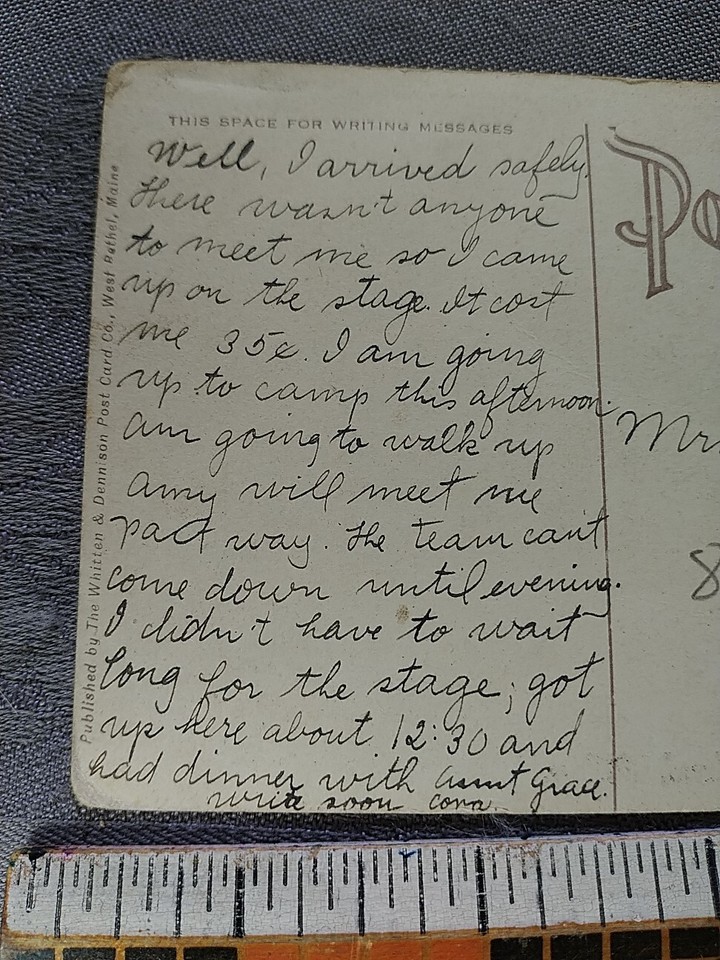 THIS SPACE FOR WRITING MESSAGES
Well, I arrived safely.
There wasn't anyone
to meet me so I came
up on the stage. It cost
me 35¢. I am going
up to camp this afternoon.
am going to walk up
amy will meet me
part way. The team can't
come down until evening.
I didn't have to wait
long for the stage; got
up here about 12:30 and
had dinner with aunt Grace.
write soon cora.
Published by The Whitten & Dennison Post Card Co., West Bethel, Maine
Po
Mrs
8